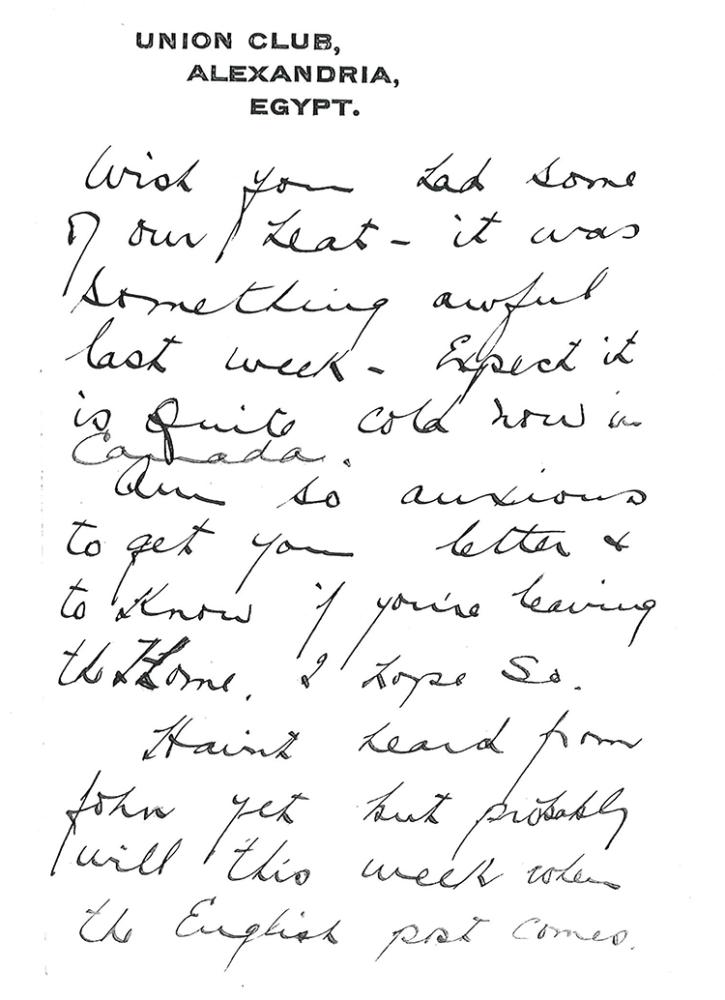 UNION CLUB,
ALEXANDRIA,
EGYPT.
Wish you had some
of our heat - it was
something awful
last week - Expect it
is quite cold now in
Canada.
Am so anxious
to get you letter &
to know if you're leaving
the Home. I hope so.
Havint heard from
John yet but probably
will this week when
the English post comes.